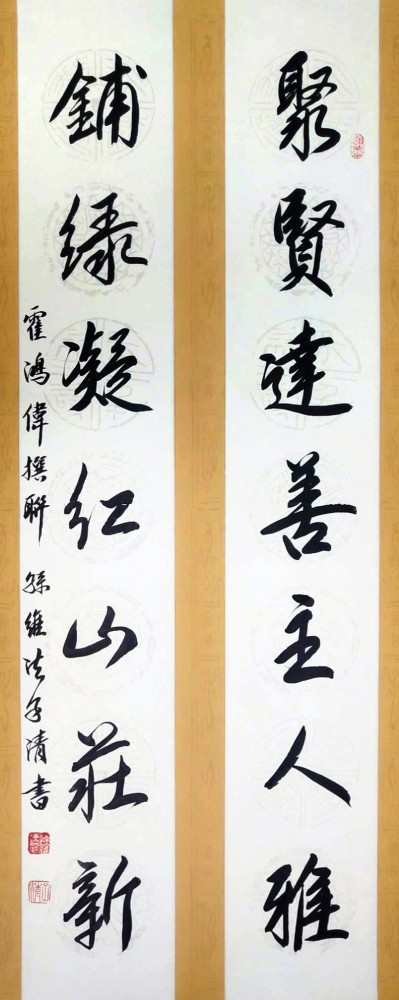 聚賢達善主人雅
鋪绿凝红山莊新
霍鴻偉撰聯 孫維法子清書